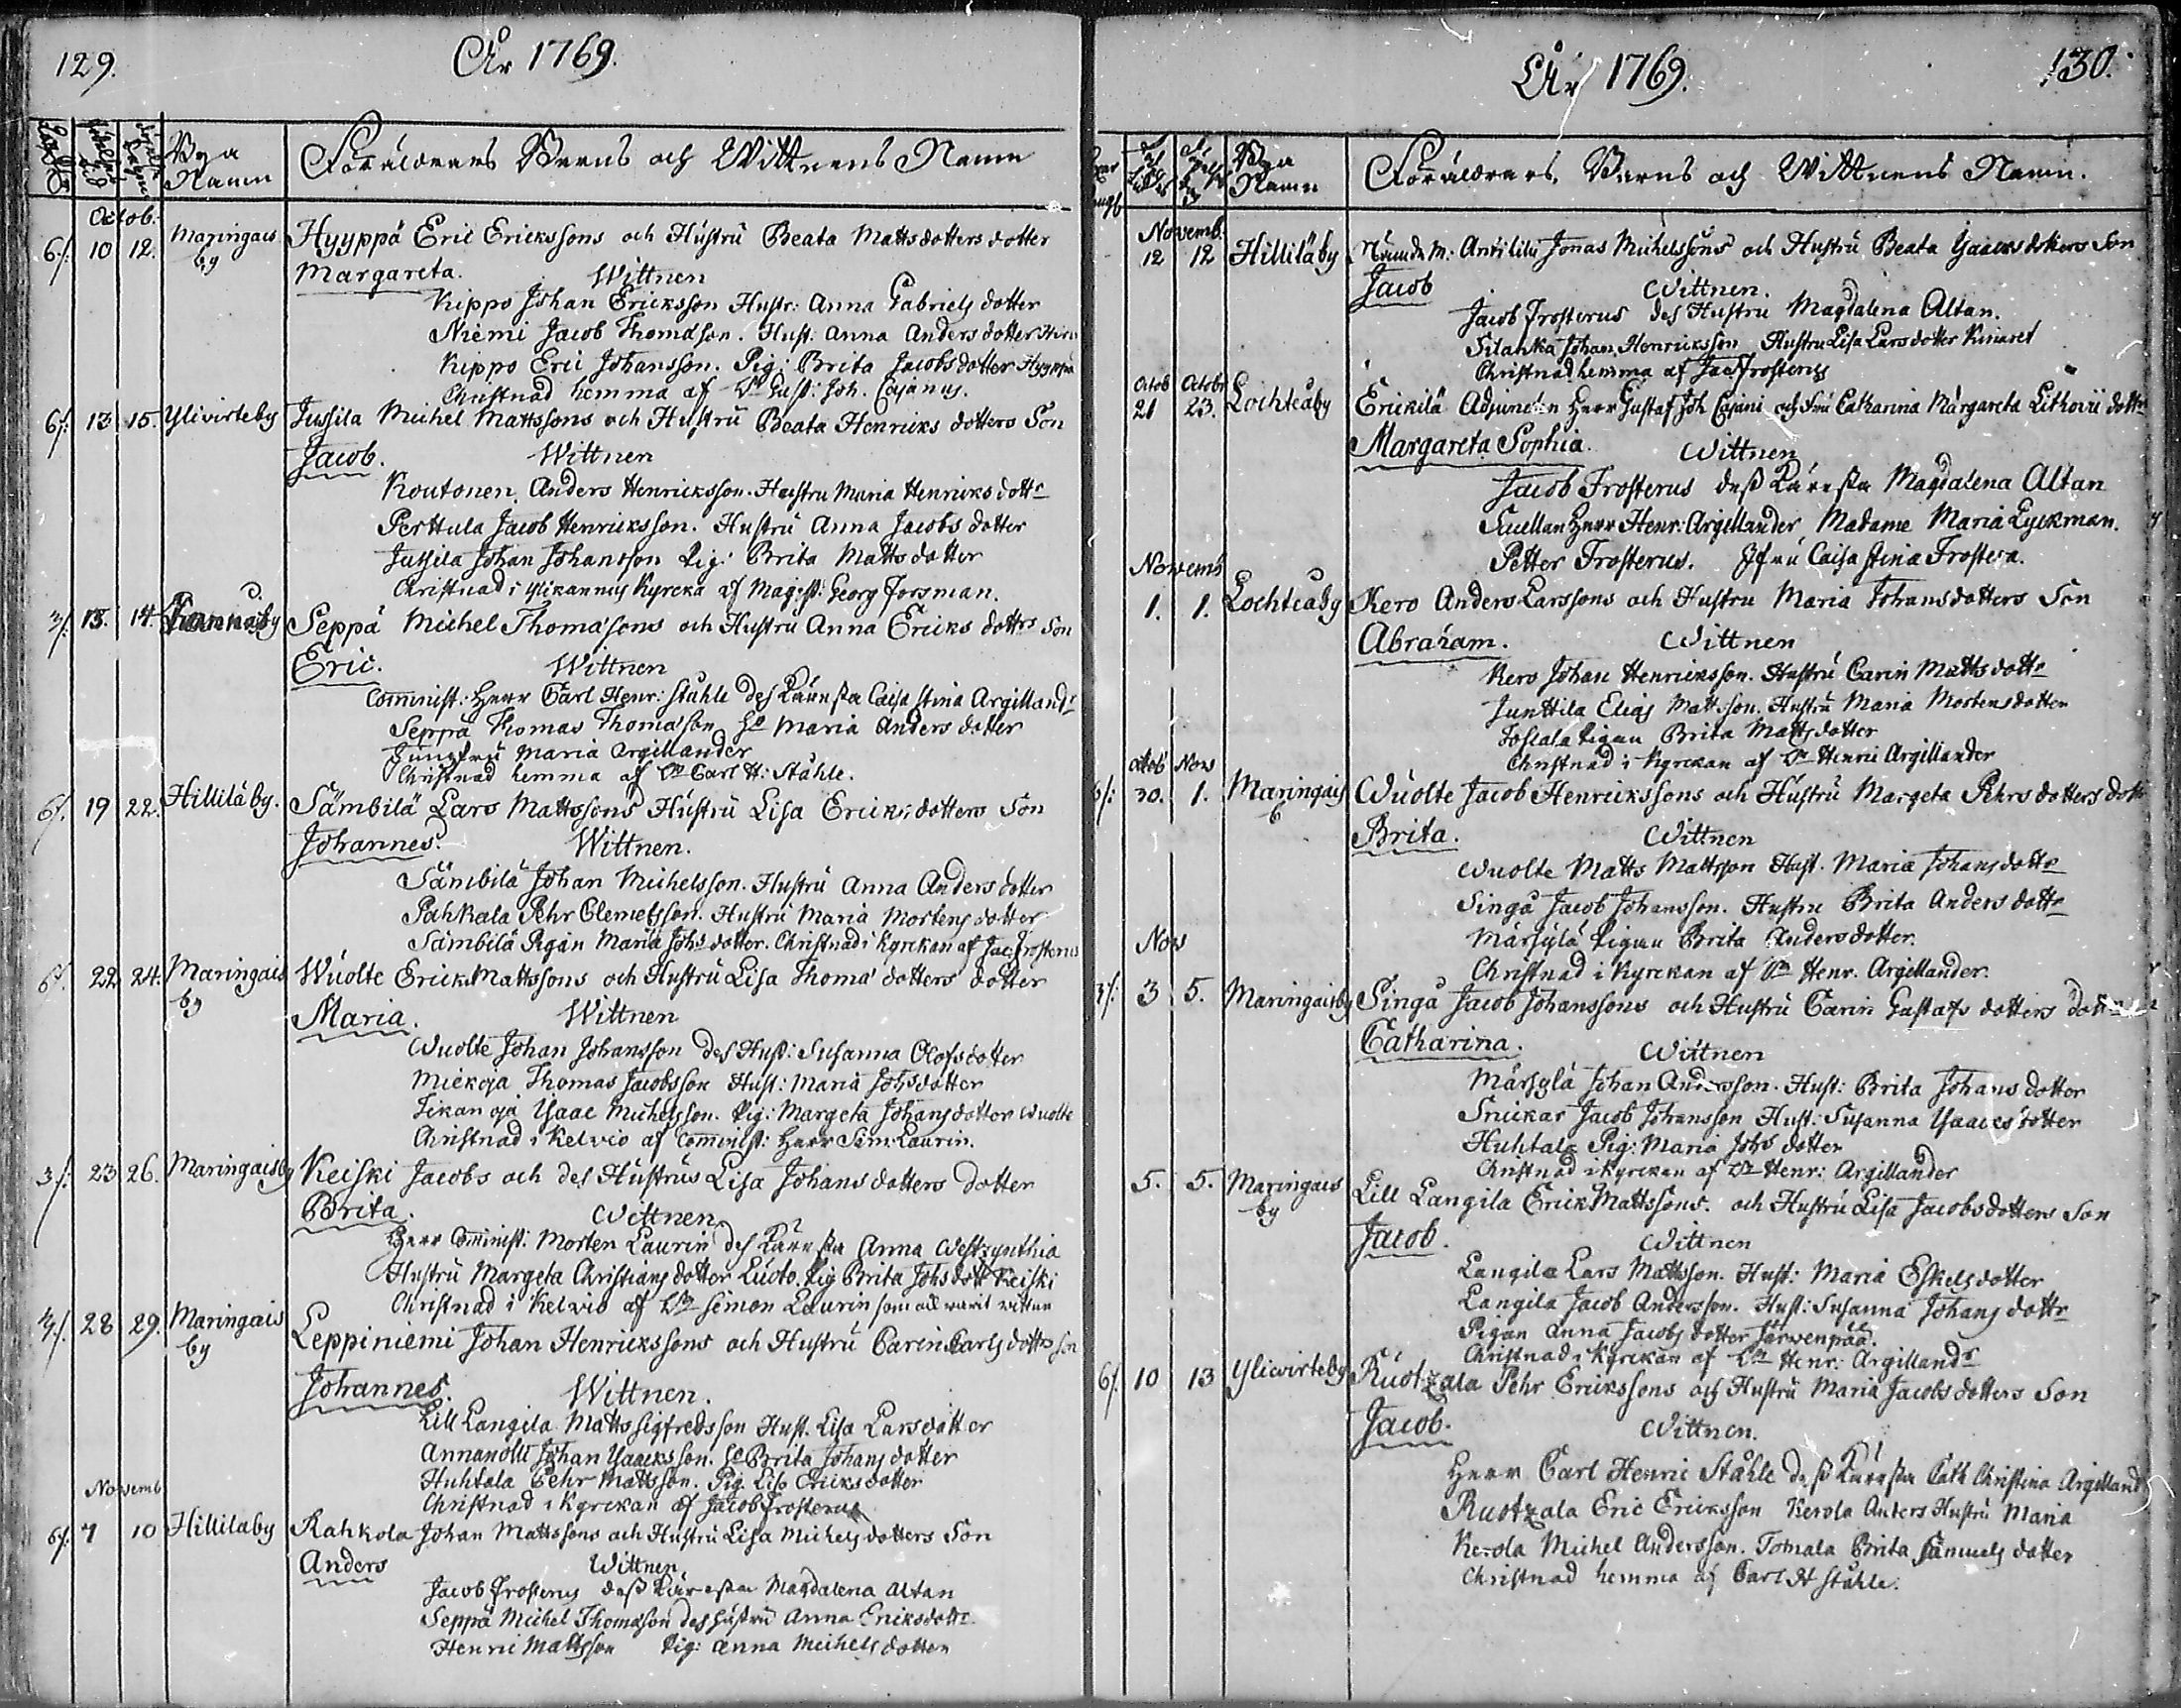 129.
År 1769.
Bya Namn
Föräldrars Barns och Wittnens Namn
Octob.
6/: 10 12. Maringais by Hyyppä Eric Erickssons och Hústrú Beata Mattsdotters dotter
Margareta. Wittnen
Kippo Johan Ericksson Hustr: Anna Gabriels dotter
Niemi Jacob Thomasson. Hust: Anna Anders dotter
Kippo Eric Johansson. Pig: Brita Jacobs dotter Hyyppä
Christnad hemma af Gust: Joh. Cajanus.
6/: 13 15. Ylivirteby Jussila Michel Mattssons och Hustrú Beata Henricks dotters Son
Jacob. Wittnen
Koutonen Anders Henricksson. Hustru Maria Henricks dottr
Perttula Jacob Henricksson. Hustrú Anna Jacobs dotter
Jussila Johan Johansson Pig: Brita Matts dotter
Christnad i Ylikannus Kyrcka af Magist: Georg Forsman.
3/: 13. 14. Seppä Michel Thomassons och Hustrú Anna Ericks dottrs Son
Eric. Wittnen
Comminist: Herr Carl Henr: Ståhle des Käresta Caisa Stina Argillandr
Seppä Thomas Thomasson Ho Maria Anders dotter
Jungfrú Maria Argillander
Christnad hemma af Carl H: Ståhle.
6/: 19 22. Hilliläby. Sämbilä Lars Mattssons Hústrú Lisa Ericks dotters Son
Johannes. Wittnen.
Sämbilä Johan Michelsson. Hustrú Anna Anders dotter
Pahkala Pehr Clemetsson. Hustrú Maria Mortens dotter
Sämbilä Pigan Maria Johs dotter. Christnad i Kyrckan af Jac: Frosterus
6/: 22 24. Maringais by Wúolte Erick Mattssons och Hustrú Lisa Thomæ dotters dotter
Maria. Wittnen
Wuolte Johan Johansson des Hust: Susanna Olofsdotter
Mickoja Thomas Jacobsson Hust: Maria Johsdotter
Ysaac Michelsson. Pig: Margeta Johans dotter Wuolte
Christnad i Kelvio af Comminist: Herr Sim: Laurin.
3/: 23 26. Maringaisby Keiski Jacobs och des Hústrús Lisa Johans dotters dotter
Brita. Wittnen.
Herr Comminist: Morten Laurin des Käresta Anna Westzynthia
Hustrú Margeta Christians dotter Luoto. Pig Brita Johs dott Keiski
Christnad i Kelvio af Simon Laurin som ock varit vittne
28 29. Maringais by Leppiniemi Johan Henrickssons och Hustrú Carin Carls dotts son
Johannes. Wittnen.
Lill Langila Matts Sigfredsson Hust. Lisa Larsdotter
Annanolli Johan Ysaacksson. Ho Brita Johans dotter
Huhtala Pehr Mattsson. Pig. Lisa Ericksdotter
Christnad i Kyrckan af Jacob Frosterus
Novemb
6/: 7 10 Hillilaby Rahkola Johan Mattssons och Hustrú Lisa Michels dotters Son
Anders Wittnen
Jacob Frosterus dess Käresta Magdalena Altan
Seppä Michel Thomasson des hústru Anna Ericksdottr
Henric Mattsson Pig: Anna Michels dotter
År 1769.
130.
Bya Namn
Föräldrars, Barns och Wittnens Namn.
Novemb.
12 12 Hilliläby Nämde M: Anttilin Jonas Michelssons och Hustrú Beata Ysaacks dotters Son
Jacob Wittnen.
Jacob Frosterus des Hustru Magdalena Altan.
Silanka Johan Henricksson Hustru Lisa Lars dotter
Christnad hemma af Jac Frosterus
Octob Octobr
21 23. Lochteåby Erickilä Adjuncten Herr Gustaf Joh Cajani och Frú Catharina Margareta Lithovii dottr
Margareta Sophia. Wittnen
Jacob Frosterus dess Käresta Magdalena Altan
Herr Henr: Argillander Madame Maria Eyckman.
Petter Frosterus. Jfrú Caisa Stina Frostera.
Novemb
1. 1. Lochteåby Kero Anders Larssons och Hustru Maria Johansdotters Son
Abraham. Wittnen
Kero Johan Henricksson. Hustrú Carin Matts dottr
Junttila Elias Mattsson. Hustrú Maria Mortensdotter
Pigan Brita Mattsdotter
Christnad i Kyrckan af Henric Argillander
Octob Nov
6/: 30. 1. Maringais b Wúolte Jacob Henrickssons och Hústrú Margeta Pehrs dotters dottr
Brita. Wittnen
Wuolte Matts Mattsson Hust. Maria Johans dottr
Singå Jacob Johansson. Hustru Brita Anders dottr
Märsylä Pigan Brita Anders dotter.
Christnad i Kyrckan af Henr. Argillander.
Nov
3/: 3 5. Maringaisby Singå Jacob Johanssons och Hustrú Carin Gustafs dotters dotter
Catharina. Wittnen
Märsylä Johan Andersson. Hust: Brita Johans dotter
Snickar Jacob Johansson Hust: Susanna Ysaacks dotter
Huhtala Pig: Maria Johs dotter
Christnad i Kyrckan af Henr: Argillander
5. 5. Maringais by Lill Langila Erick Mattssons. och Hustrú Lisa Jacobsdotters Son
Jacob. Wittnen
Langila Lars Mattsson. Hust: Maria Eskels dotter
Langila Jacob Andersson. Hust: Susanna Johans dottr
Pigan Anna Jacobs dotter Järwenpää.
Christnad i Kyrckan af Henr: Argillandr
6/: 10 13 Ylivirteby Rúotzala Pehr Erickssons och Hustrú Maria Jacobs dotters Son
Jacob. Wittnen.
Herr Carl Henric Ståhle dess Käresta Cath Christina Argilland
Ruotzala Eric Ericksson Kerola Anders Hustrú Maria
Kerola Michel Andersson. Tomala Brita Samuels dotter
Christnad hemma af Carl H Ståhle.